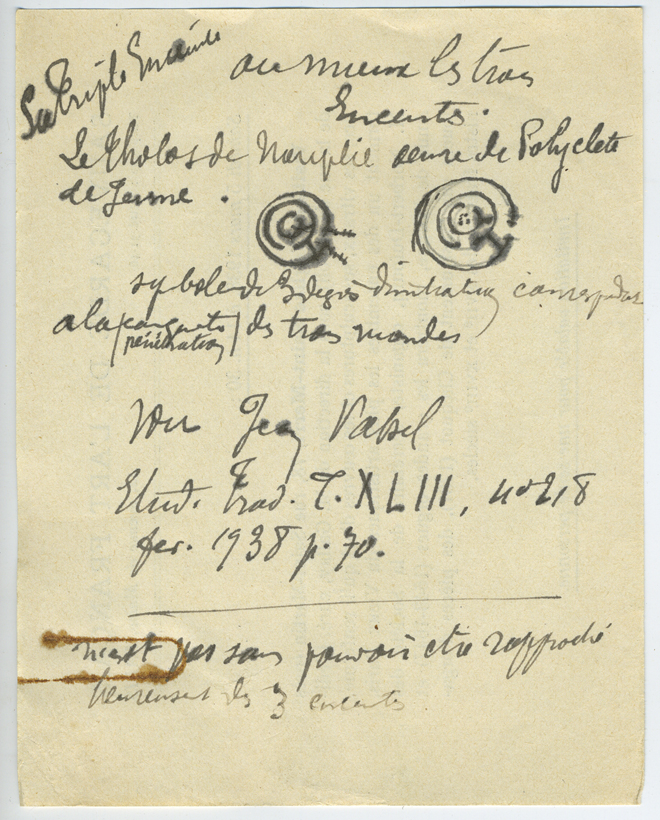 La Triple Enceinte
ou mieux les trois
Enceintes.
Le Tholos de Nauplie œuvre de Polyclete
de Jeune.
symbole de 3 degrés d'initiation correspondant
a la (conquete) des trois mondes
(pénétration)
Voir Jean Vassel
Etud. Trad. T. XLIII, no 218
fev. 1938 p. 70.
n'est pas sans pouvoir etre rapproché
heureusement des 3 enceintes